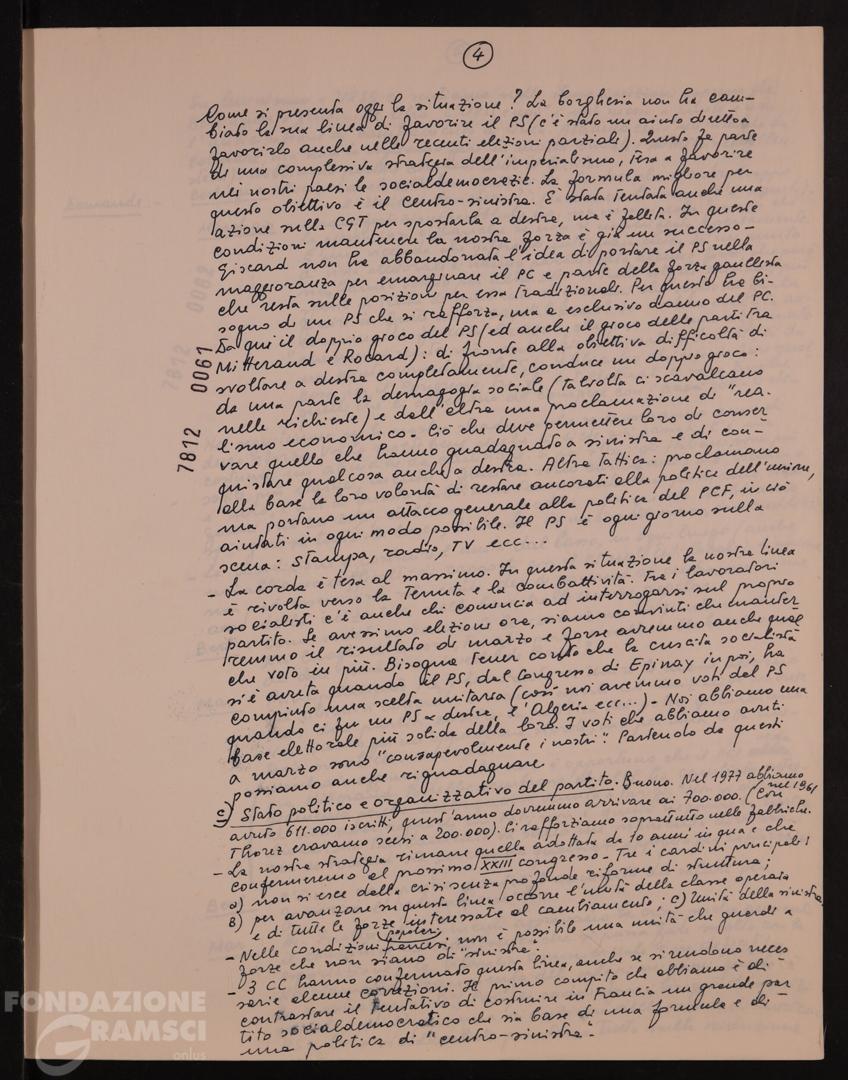 4
Come si presenta oggi la situazione? La borghesia non ha cam-
biato la sua linea di favorire il PS (c'è stato un aiuto diretto a
favorirlo anche nelle recenti elezioni parziali). Questo fa parte
di una complessiva strategia dell'imperialismo, tesa a favorire
nei nostri paesi le socialdemocrazie. La formula migliore per
questo obiettivo è il centro-sinistra. E' stata tentata anche una
azione sulla CGT per spostarla a destra, ma è fallita. In queste
condizioni mantenere la nostra forza è già un successo-
Giscard non ha abbandonata l'idea di portare il PS nella
maggioranza per emarginare il PC e parte della forza gaullista
che resta sulle posizioni per essa tradizionali. Per questo ha bi-
sogno di un PS che si rafforza, ma a esclusivo danno del PC.
Da qui il doppio gioco del PS (ed anche il gioco delle parti tra
Mitterand e Rocard): di fronte alla obiettiva difficoltà di
svoltare a destra completamente, conduce un doppio gioco:
da una parte la demagogia sociale (talvolta ci scavalcano
nelle richieste) e dall'altra una proclamazione di "rea-
lismo economico". Ciò che deve permettere loro di conser
vare quello che hanno guadagnato a sinistra e di con-
quistare qualcosa anche a destra. Altra tattica: proclamano
alla base la loro volontà di restare ancorati alla politica dell'unione,
ma portano un attacco generale alla politica del PCF, in ciò
aiutati in ogni modo possibile. Il PS è ogni giorno sulla
scena: stampa, radio, TV ecc...
- La corda è tesa al massimo. In questa situazione la nostra linea
è rivolta verso la tenuta e la combattività. Tra i lavoratori
socialisti c'è anche chi comincia ad interrogarsi sul proprio
partito. Se avessimo elezioni ora, siamo convinti che manter
remmo il risultato di marzo e forse avremmo anche qual
che voto in più. Bisogna tener conto che la crescita socialista
si è avuta quando il PS, dal Congresso di Epinay in poi, ha
compiuto una scelta unitaria (così noi avemmo voti dal PS
quando ci fu un PS a destra, e l'Algeria ecc...) - Noi abbiamo una
base elettorale più solida della loro. I voti che abbiamo avuti
a marzo sono "consapevolmente i nostri". Partendo da questi
possiamo anche riguadagnare
c) Stato politico e organizzativo del partito. Buono. Nel 1977 abbiamo
avuto 611.000 iscritti, quest'anno dovremmo arrivare ai 700.000. (Con nel 1961
Thorez eravamo scesi a 200.000). Ci rafforziamo soprattutto nelle fabbriche.
- La nostra strategia rimane quella adottata da 10 anni in qua e che
confermeremo al prossimo XXIII congresso - Tre i cardini principali:
a) non si esce dalla crisi senza profonde riforme di struttura;
B) per avanzare su questa linea occorre l'unità della classe operaia
e di tutte le forze interessate al cambiamento; c) Unità della sinistra.
- Nelle condizioni (popolari) francesi non è possibile una unità che guardi a
forze che non siano di "sinistra".
- 3 CC hanno confermato questa linea, anche se si rendono neces
sarie alcune correzioni. Il primo compito che abbiamo è di
contrastare il tentativo di costruire in Francia un grande par
tito socialdemocratico che sia base di una formula e di
una politica di "centro-sinistra".
7812 0061
FONDAZIONE
GRAMSCI
onlus